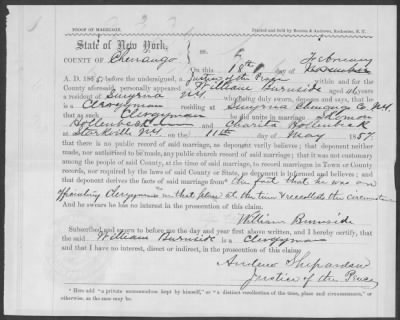 PROOF OF MARRIAGE. Printed and Sold by Brevins & Andrews, Rochester, N. Y.
State of New York,
COUNTY OF Chenango ss.
On this 18th day of February
A. D. 186 before the undersigned, a Justice of the Peace within and for the
County aforesaid, personally appeared William Burnside aged 46 years
a resident of Smyrna NY who being duly sworn, deposes and says, that he
is a Clergyman residing at Smyrna Chenango Co N.Y.
that as such, Clergyman he did unite in marriage Solomon
Hollenbeck and Charita Hollenbeck
at Starkville NY on the 11th day of May 1857
that there is no public record of said marriage, as deponent verily believes; that deponent neither
made, nor authorized to be made, any public church record of said marriage; that it was not customary
among the people of said County, at the time of said marriage, to record marriages in Town or County
records, nor required by the laws of said County or State, as deponent is informed and believes; and
that deponent derives the facts of said marriage from* the fact that he was an
officiating Clergyman in that place at the time & recollects the circumstances
And he swears he has no interest in the prosecution of this claim.
William Burnside
Subscribed and sworn to before me the day and year first above written, and I hereby certify, that
the said William Burnside is a Clergyman
and that I have no interest, direct or indirect, in the prosecution of this claim.
Andrew Shepardson
Justice of the Peace
* Here add "a private memorandum kept by himself," or "a distinct recollection of the time, place and circumstances," or
otherwise, as the case may be.